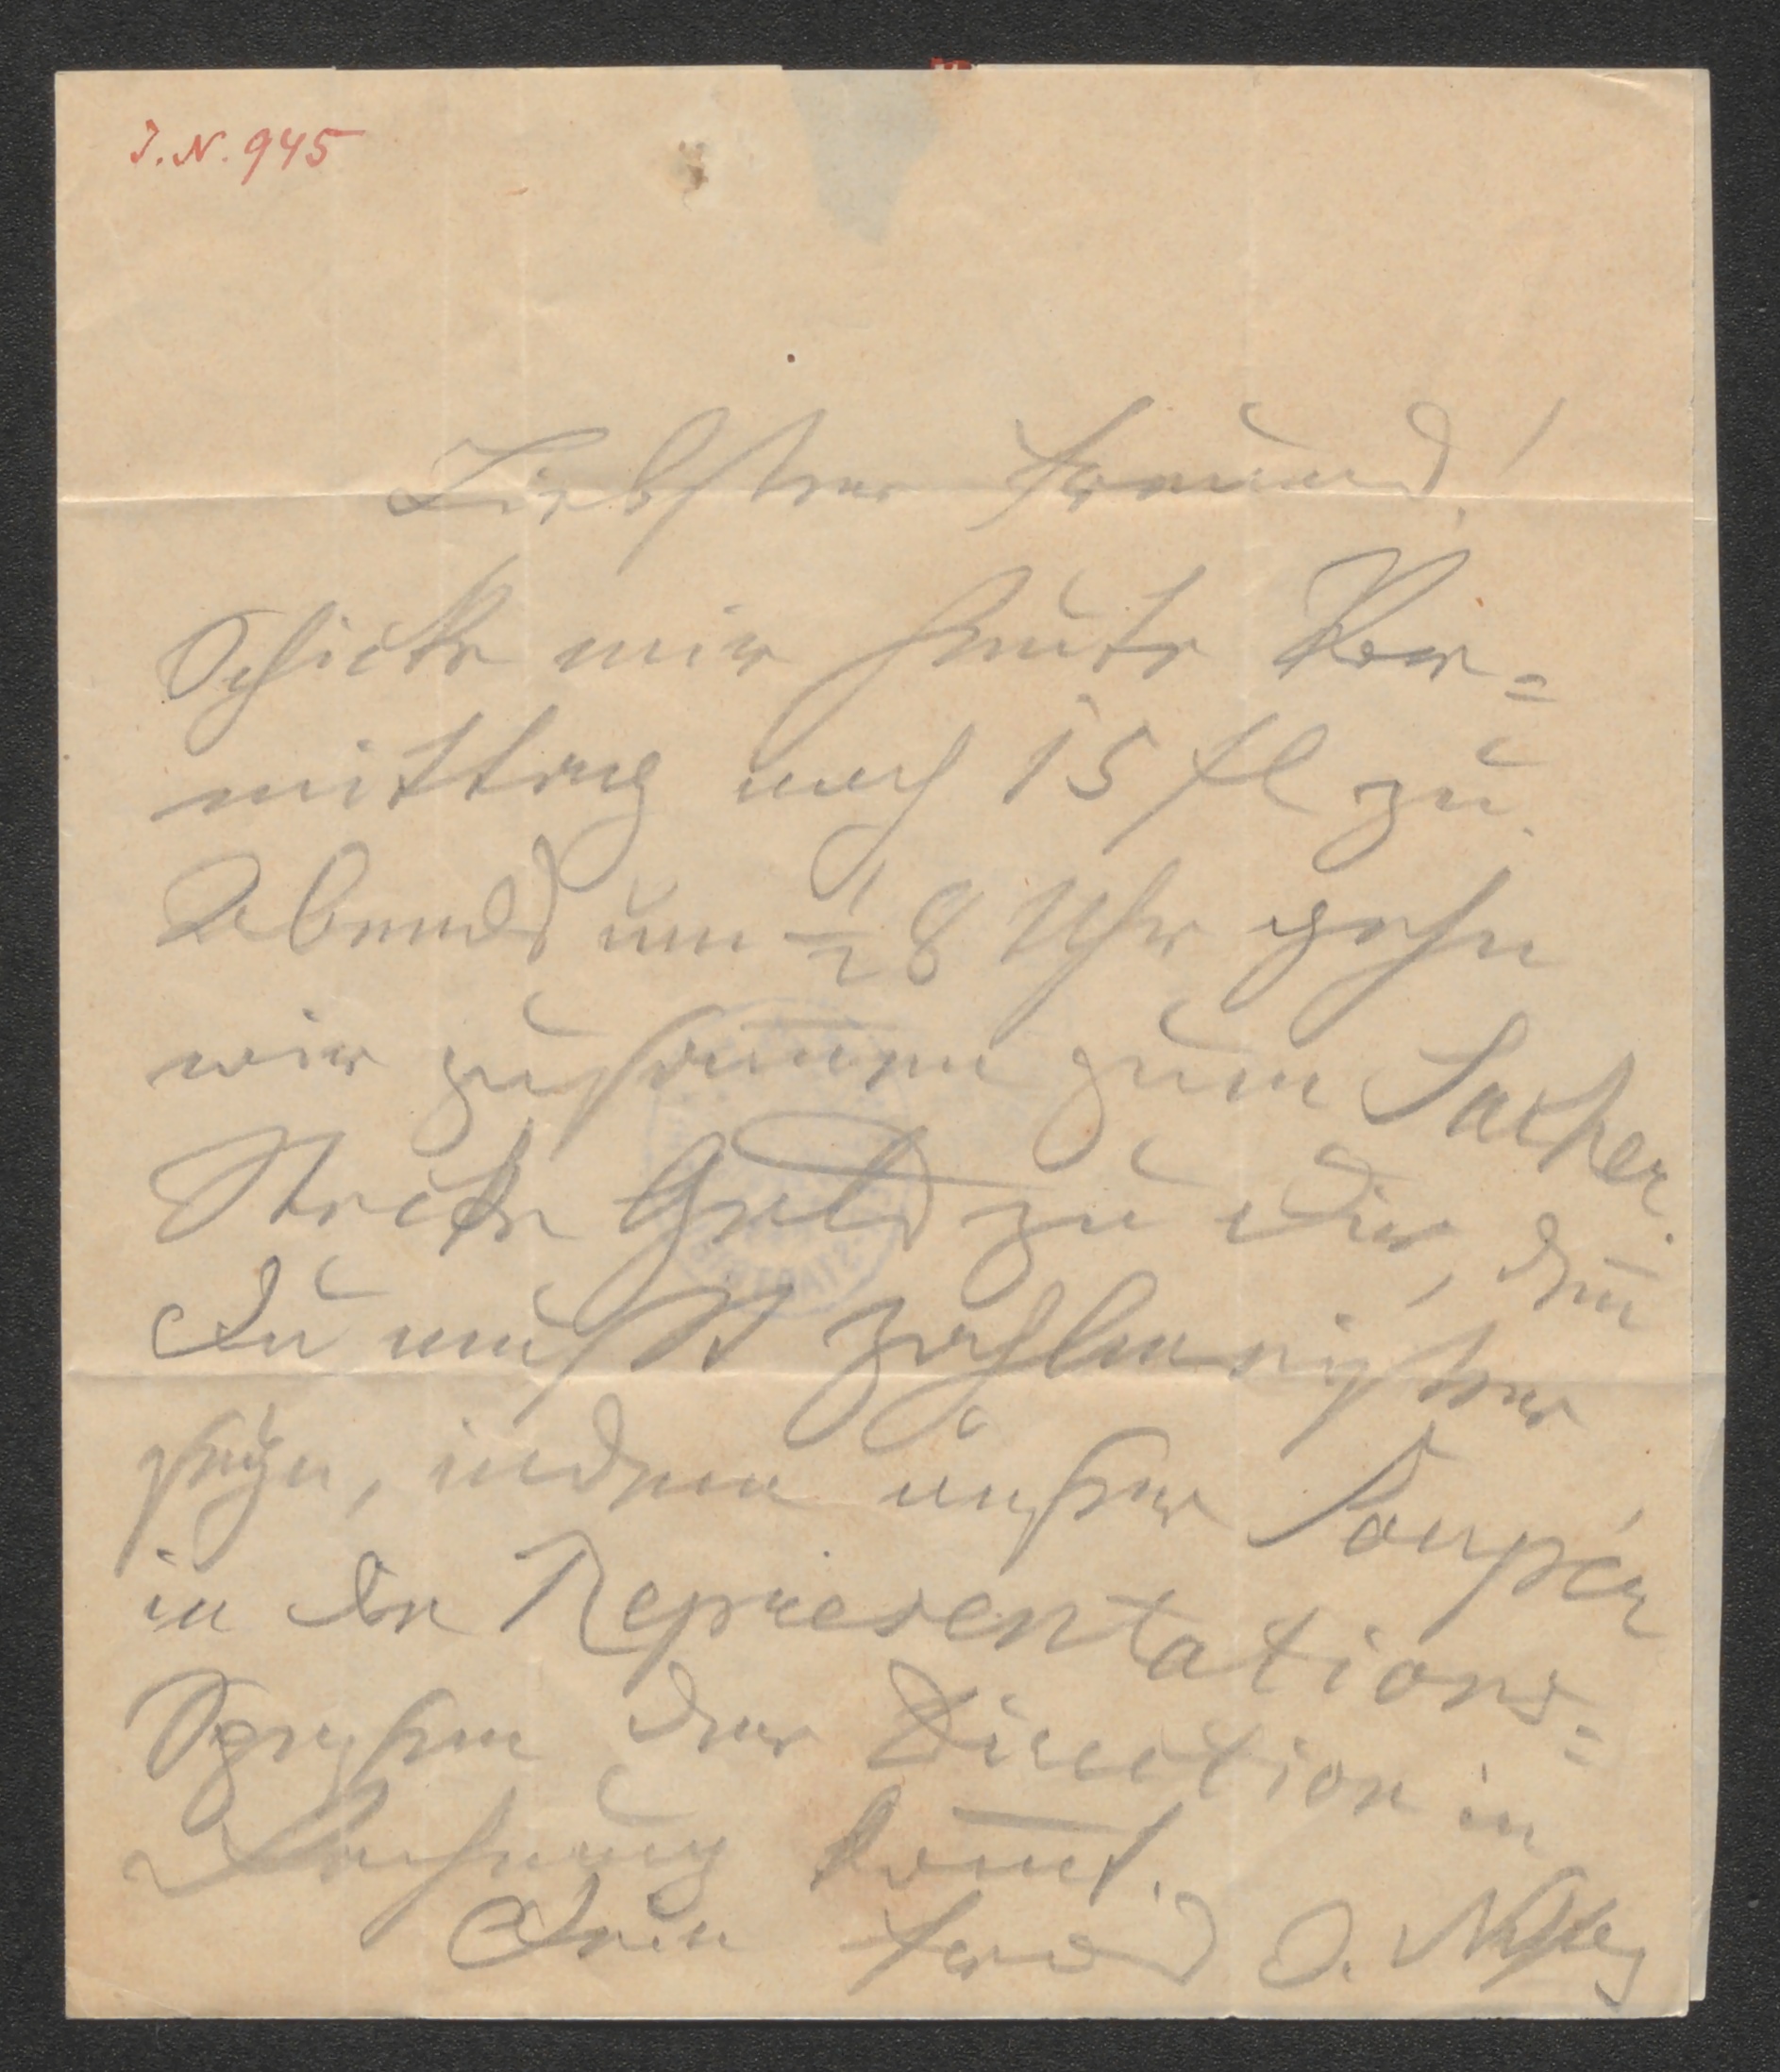 J. N. 945
Liebster Freund!
Schicke mir heute Vor=
mittag noch 15 fl zu.
Abends um ½ 8 Uhr gehn
wir zusam̅en zum Sacher.
Stecke Geld zu Dir, den̅
Du mußt Zahlmeister
sein, indem unser Soupér
in den Representations=
Spesen der Direction in
Rechnung kom̅t.
Dein Freund J.